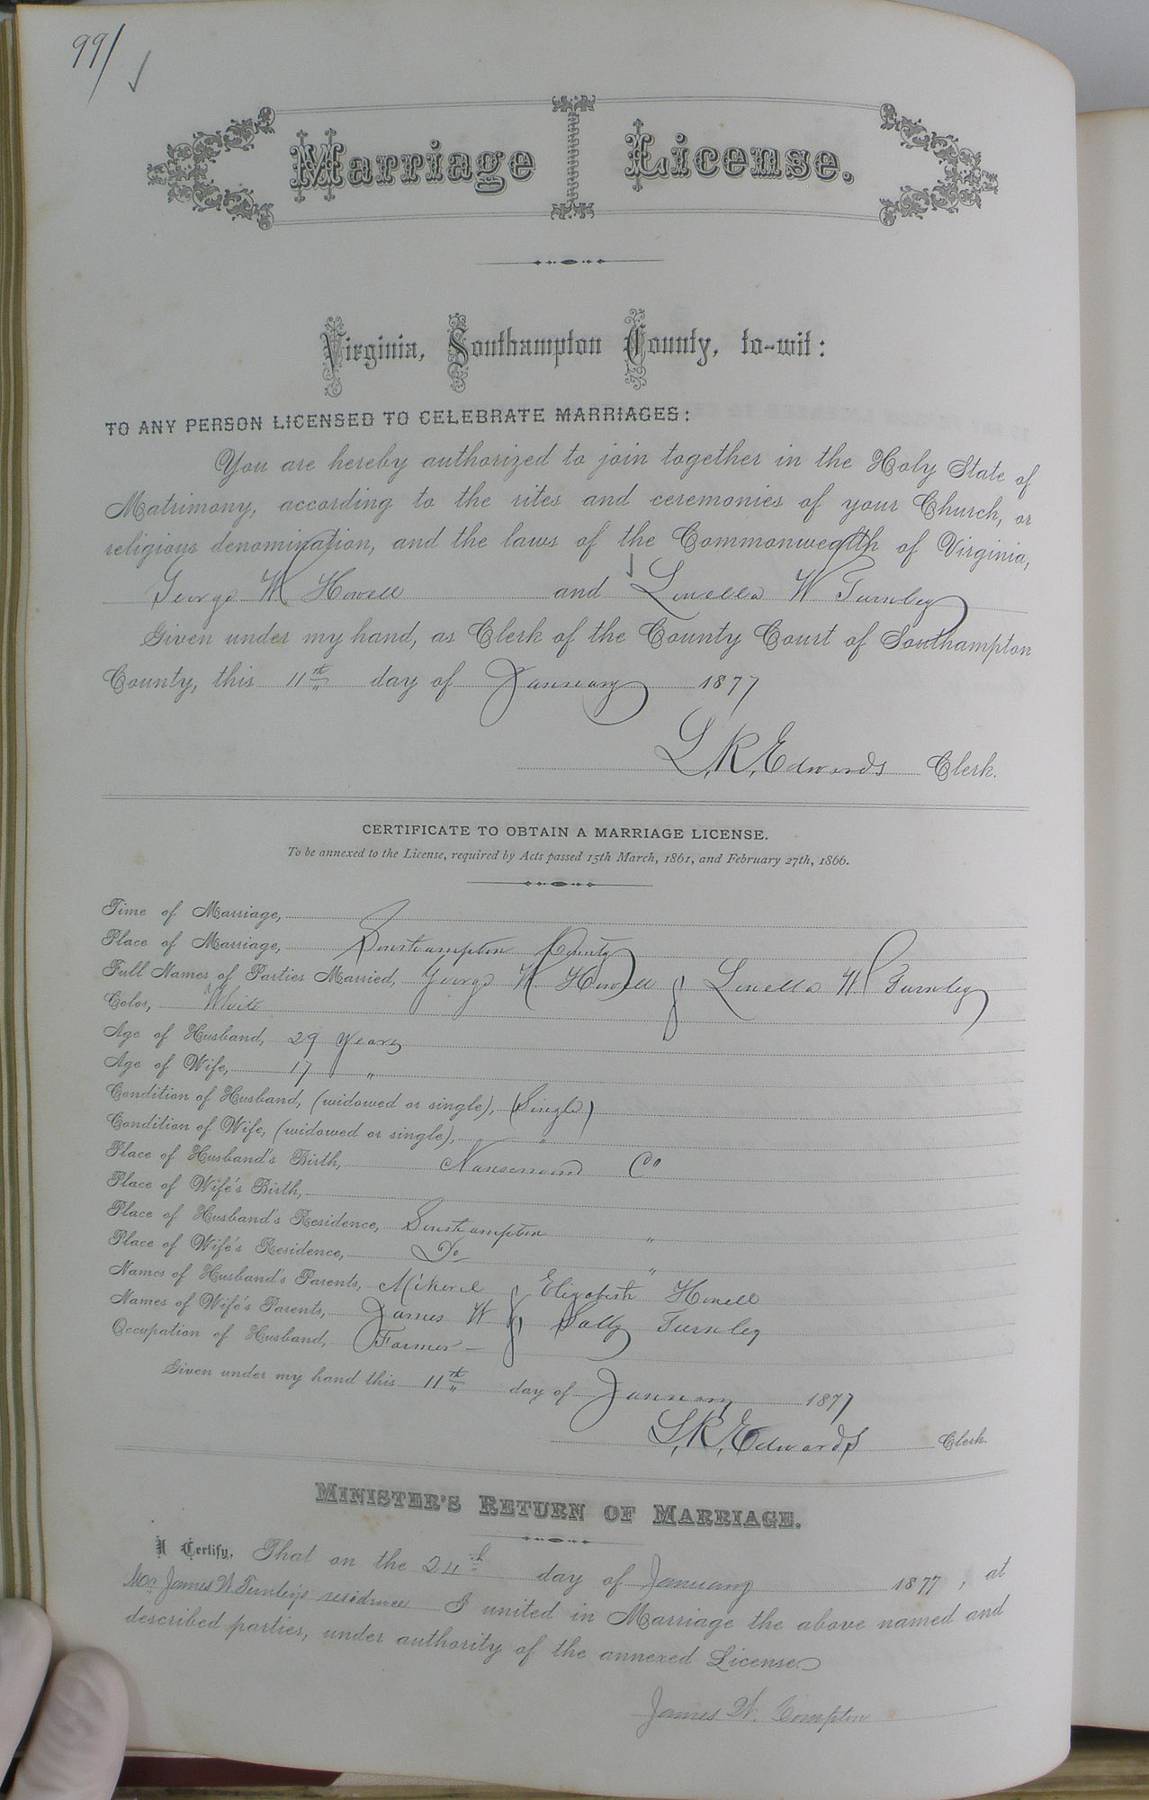 99/
Marriage License.
Virginia, Southampton County, to-wit:
TO ANY PERSON LICENSED TO CELEBRATE MARRIAGES:
You are hereby authorized to join together in the Holy State of
Matrimony, according to the rites and ceremonies of your Church, or
religious denomination, and the laws of the Commonwealth of Virginia,
George W Howell and Louella W Turnley
Given under my hand, as Clerk of the County Court of Southampton
County, this 11th day of January 1877
L. R. Edwards Clerk.
CERTIFICATE TO OBTAIN A MARRIAGE LICENSE.
To be annexed to the License, required by Acts passed 15th March, 1861, and February 27th, 1866.
Time of Marriage,
Place of Marriage, Southampton County
Full Names of Parties Married, George W Howell & Louella W Turnley
Color, White
Age of Husband, 29 Years
Age of Wife, 17 "
Condition of Husband, (widowed or single), (Single)
Condition of Wife, (widowed or single), "
Place of Husband's Birth, Nansemond Co
Place of Wife's Birth,
Place of Husband's Residence, Southampton "
Place of Wife's Residence, Do "
Names of Husband's Parents, & Elizabeth Howell
Names of Wife's Parents, James W & Sally Turnley
Occupation of Husband, Farmer
Given under my hand this 11th day of January 1877
L. R. Edwards Clerk.
MINISTER'S RETURN OF MARRIAGE.
I Certify, That on the 24th day of January 1877, at
Mr James W Turnley's residence I united in Marriage the above named and
described parties, under authority of the annexed License
James W. Compton